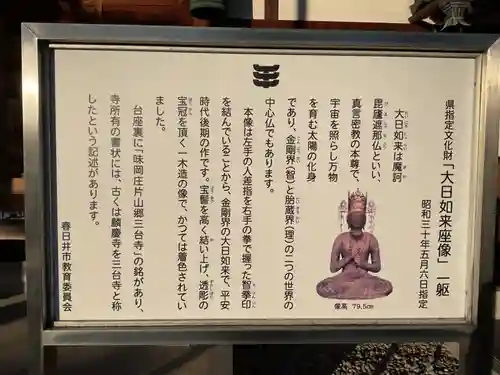 県指定文化財「大日如来座像」一躯
昭和三十年五月六日指定
大日如来は魔訶
毘廬遮那仏といい、
真言密教の本尊で、
宇宙を照らし万物
を育む太陽の化身
であり、金剛界（智）と胎蔵界（理）の二つの世界の
中心仏でもあります。
本像は左手の人差指を右手の拳で握った智拳印
を結んでいることから、金剛界の大日如来で、平安
時代後期の作です。宝髻を高く結い上げ、透彫の
宝冠を頂く一木造の像で、かつては着色されてい
ました。
台座裏に「味岡庄片山郷三台寺」の銘があり、
寺所有の書状には、古くは麟慶寺を三台寺と称
したという記述があります。
春日井市教育委員会
像高 79.5cm